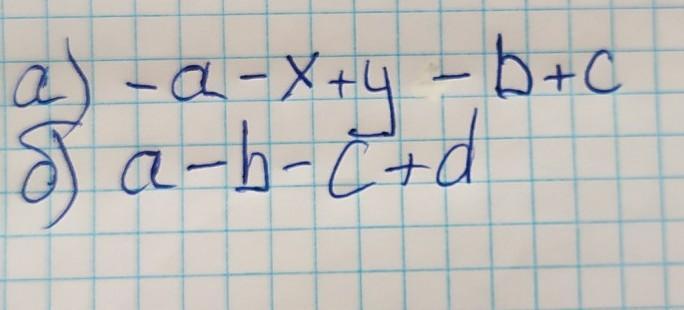 а) -a-x+y - b+c
б) a-b-c+d